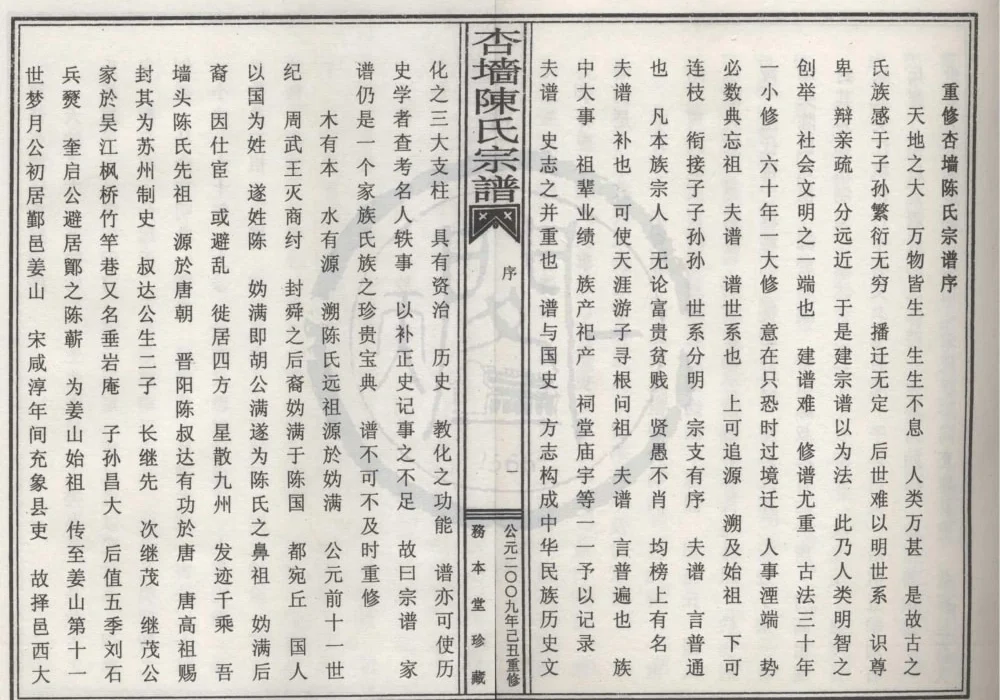 重修杏墙陈氏宗谱序
天地之大 万物皆生 生生不息 人类万甚 是故古之
氏族感于子孙繁衍无穷 播迁无定 后世难以明世系 识尊
卑 辩亲疏 分远近 于是建宗谱以为法 此乃人类明智之
创举 社会文明之一端也 建谱难 修谱尤重 古法三十年
一小修 六十年一大修 意在只恐时过境迁 人事湮端 势
必数典忘祖 夫谱 谱世系也 上可追源 溯及始祖 下可
连枝 衔接子子孙孙 世系分明 宗支有序 夫谱 言普通
也 凡本族宗人 无论富贵贫贱 贤愚不肖 均榜上有名
夫谱 补也 可使天涯游子寻根问祖 夫谱 言普遍也 族
中大事 祖辈业绩 族产祀产 祠堂庙宇等一一予以记录
夫谱 史志之并重也 谱与国史 方志构成中华民族历史文
杏墙陳氏宗譜
序
一
公元二〇〇九年己丑重修
務本堂珍藏
化之三大支柱 具有资治 历史 教化之功能 谱亦可使历
史学者查考名人轶事 以补正史记事之不足 故曰宗谱 家
谱仍是一个家族氏族之珍贵宝典 谱不可不及时重修
木有本 水有源 溯陈氏远祖源於妫满 公元前十一世
纪 周武王灭商纣 封舜之后裔妫满于陈国 都宛丘 国人
以国为姓 遂姓陈 妫满即胡公满遂为陈氏之鼻祖 妫满后
裔 因仕宦 或避乱 徙居四方 星散九州 发迹千乘 吾
墙头陈氏先祖 源於唐朝 晋阳陈叔达有功於唐 唐高祖赐
封其为苏州制史 叔达公生二子 长继先 次继茂 继茂公
家於吴江枫桥竹竿巷又名垂岩庵 子孙昌大 后值五季刘石
兵燹 奎启公避居鄞之陈蕲 为姜山始祖 传至姜山第十一
世梦月公初居鄞邑姜山 宋咸淳年间充象县吏 故择邑西大